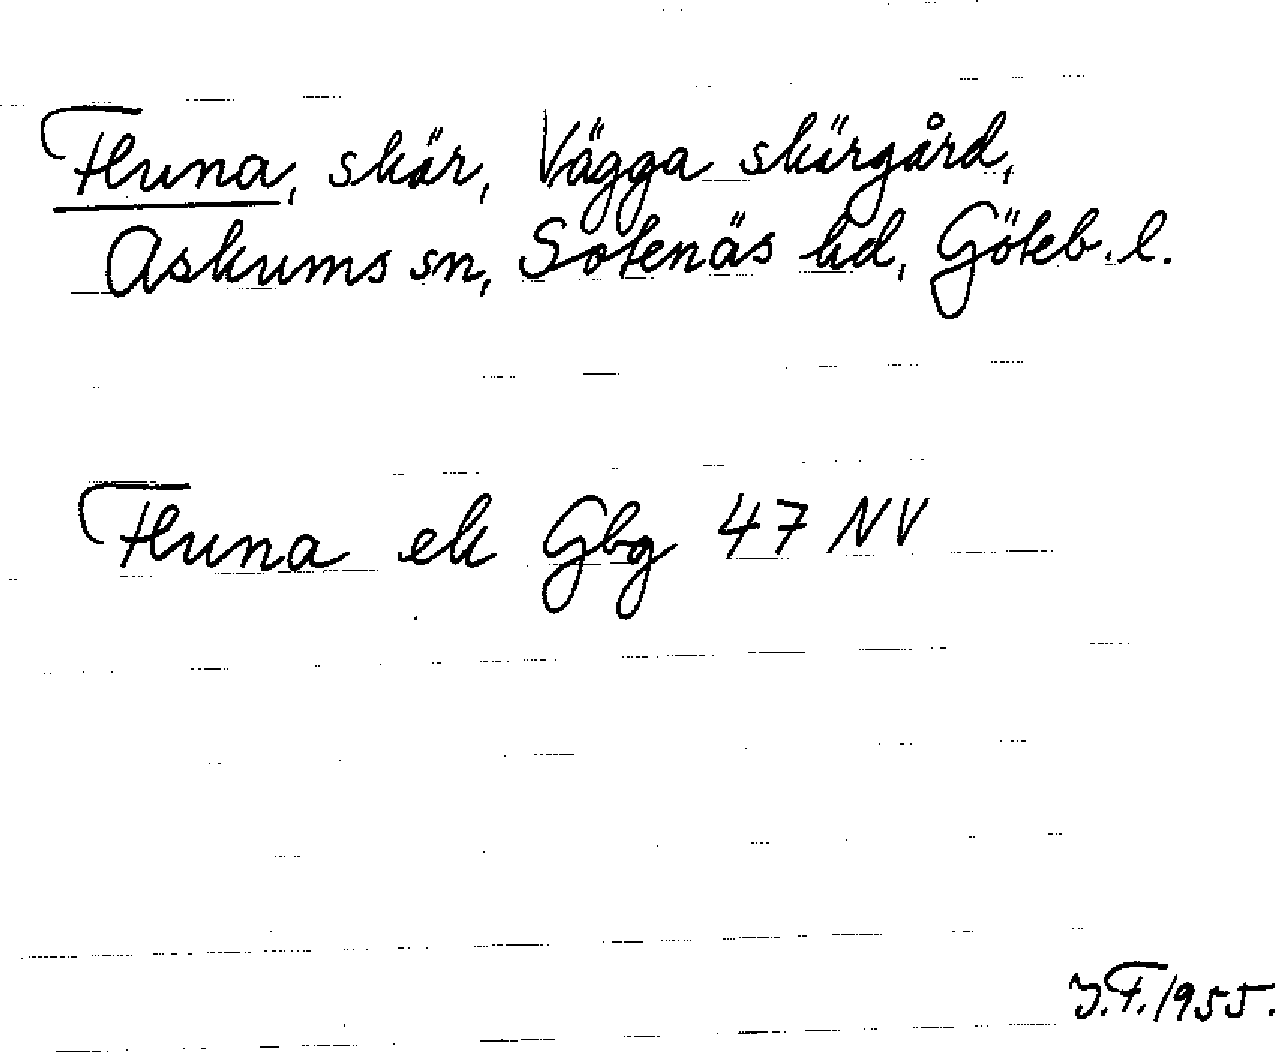 Fluna, skär, Vägga skärgård,
Askums sn, Sotenäs hd, Göteb. l.
Fluna ek Gbg 47 NV
J.F. 1955.